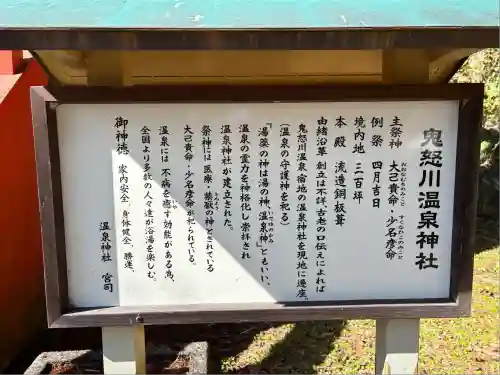 鬼怒川温泉神社
主祭神 大己貴命・少名彦命
おおなむちのみこと すくなびこのみこと
例祭 四月吉日
境内地 三百坪
本殿 流造銅板葺
由緒沿革 創立は不詳、古老の口伝えによれば
鬼怒川温泉宿地の温泉神社を現地に遷座、
(温泉の守護神を祀る)
「湯薬の神は湯の神、温泉神」ともいい、
いでゆのかみ
温泉の霊力を神格化し崇拝され
温泉神社が建立された。
祭神には医療・薬製の神とされている
大己貴命・少名彦命が祀られている。
温泉には不病を癒す効能がある為、
いや
全国より多数の人々達が浴湯を楽しむ。
御神徳 家内安全、身体健全、勝運、
温泉神社 宮司